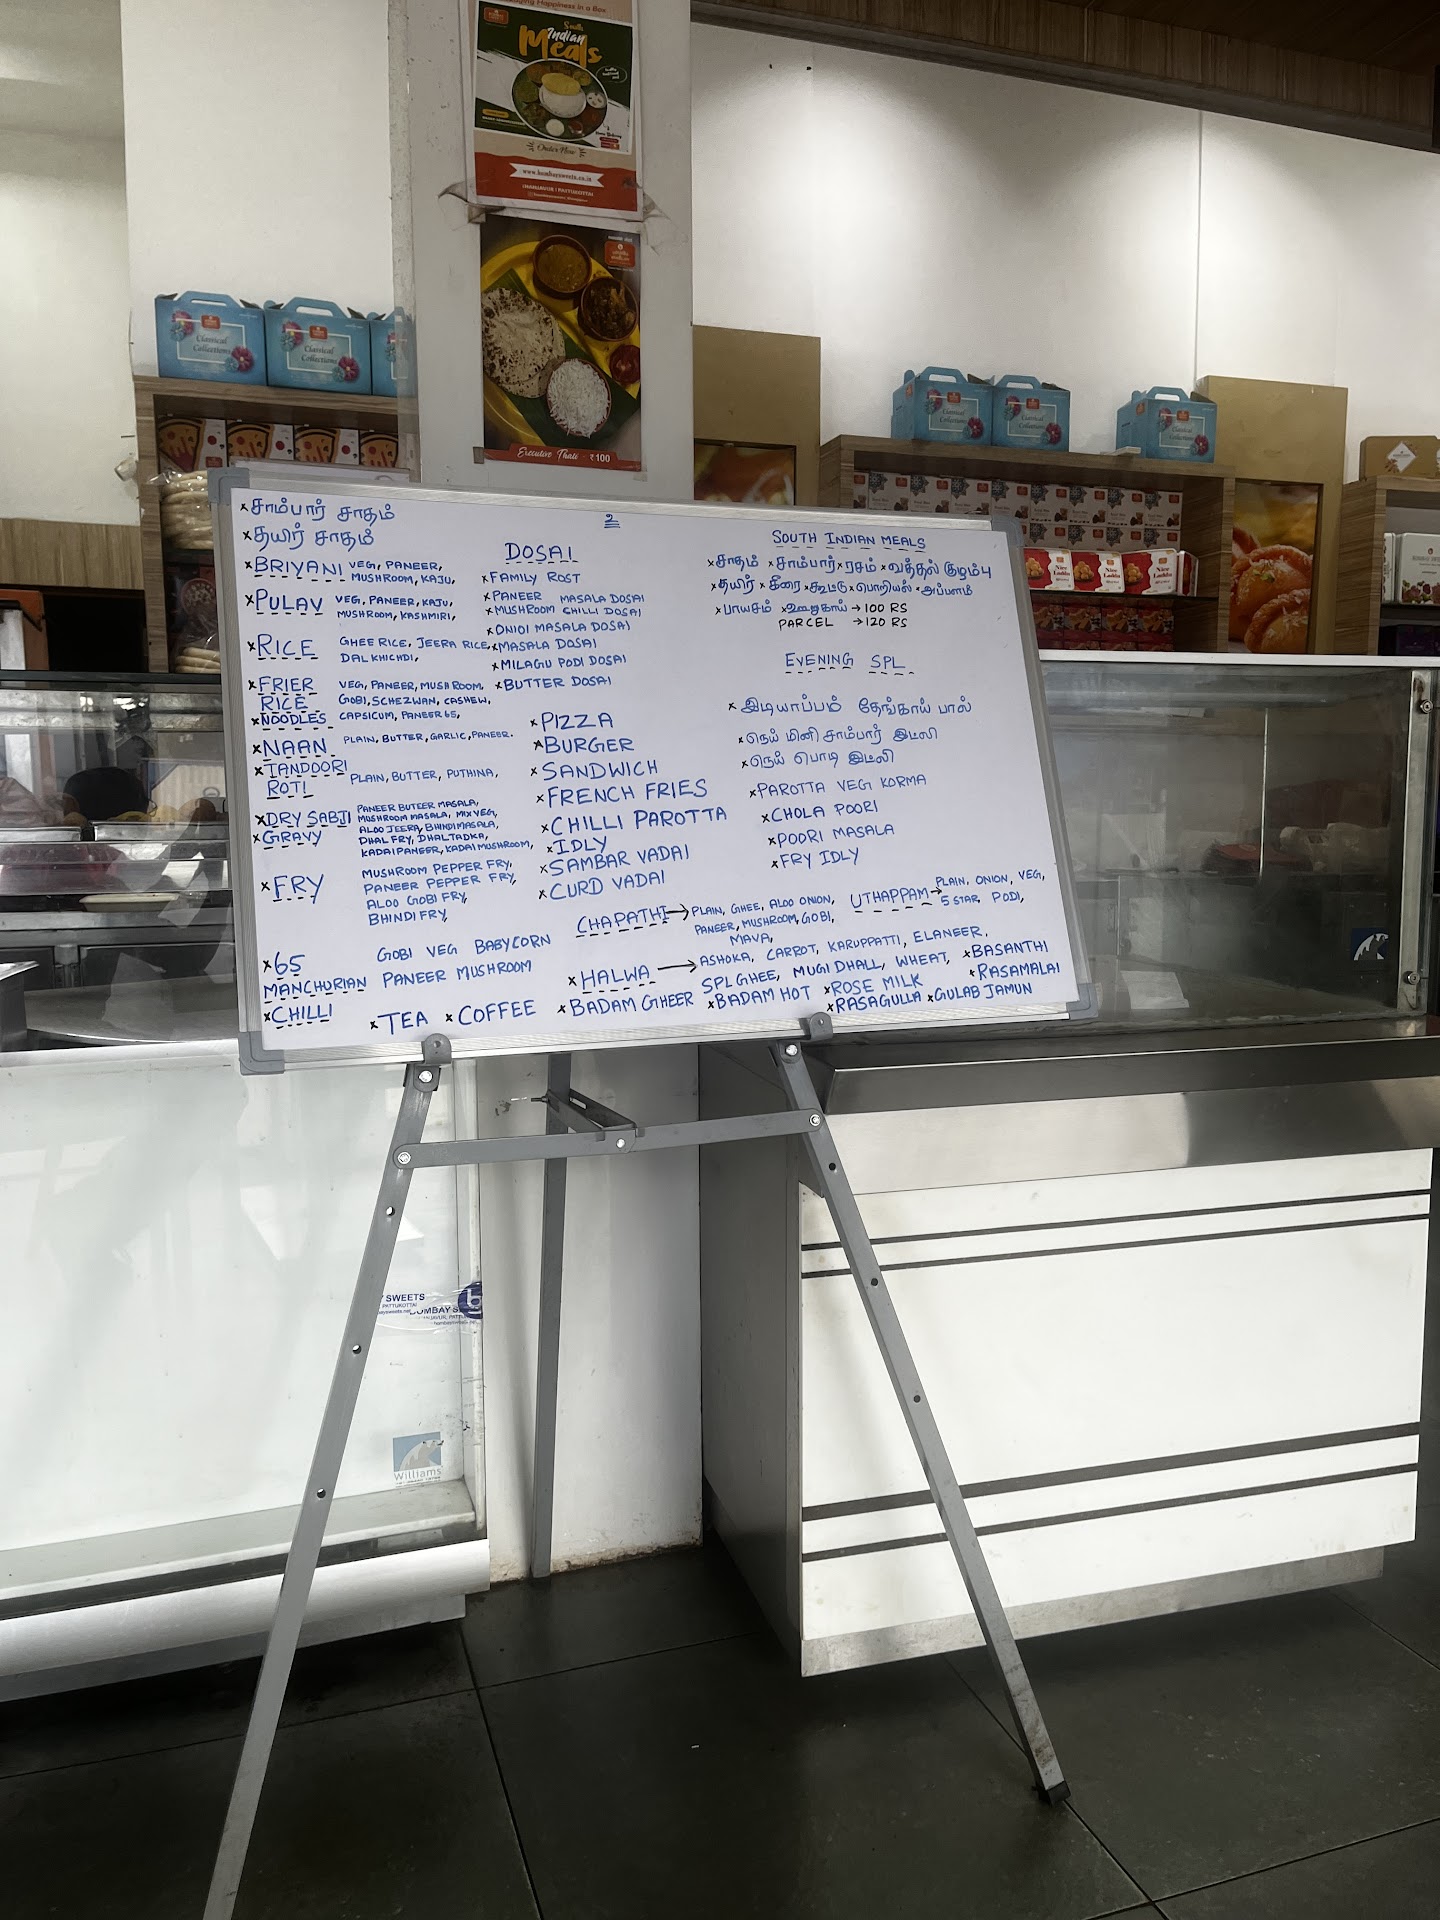 South
Indian
Meals
Order Now
www.bombaysweets.co.in
THANJAVUR | PATTUKOTTAI
Executive Thali - ₹100
Classical
Collections
Classical
Collections
Classical
Collections
Classical
Collections
Classical
Collections
2
×சாம்பார் சாதம்
×தயிர் சாதம்
×BRIYANI VEG, PANEER,
MUSHROOM, KAJU,
×PULAV VEG, PANEER, KAJU,
MUSHROOM, KASHMIRI,
×RICE GHEE RICE, JEERA RICE,
DAL KHICHDI,
×FRIER VEG, PANEER, MUSHROOM,
RICE GOBI, SCHEZWAN, CASHEW,
×NOODLES CAPSICUM, PANEER 65,
×NAAN PLAIN, BUTTER, GARLIC, PANEER.
×TANDOORI
ROTI PLAIN, BUTTER, PUTHINA,
×DRY SABJI PANEER BUTEER MASALA,
MUSHROOM MASALA, MIX VEG,
×GRAVY ALOO JEERA, BHINDI MASALA,
DHAL FRY, DHAL TADKA,
KADAI PANEER, KADAI MUSHROOM,
×FRY MUSHROOM PEPPER FRY,
PANEER PEPPER FRY,
ALOO GOBI FRY,
BHINDI FRY,
×65 GOBI VEG BABYCORN
MANCHURIAN PANEER MUSHROOM
×CHILLI
DOSAI
×FAMILY ROST
×PANEER MASALA DOSAI
×MUSHROOM CHILLI DOSAI
×ONIOI MASALA DOSAI
×MASALA DOSAI
×MILAGU PODI DOSAI
×BUTTER DOSAI
×PIZZA
×BURGER
×SANDWICH
×FRENCH FRIES
×CHILLI PAROTTA
×IDLY
×SAMBAR VADAI
×CURD VADAI
SOUTH INDIAN MEALS
×சாதம் ×சாம்பார் ×ரசம் ×வத்தல் குழம்பு
×தயிர் ×கீரை ×கூட்டு ×பொறியல் ×அப்பளம்
×பாயசம் ×ஊறுகாய் →100 RS
PARCEL →120 RS
EVENING SPL
×இடியாப்பம் தேங்காய் பால்
×நெய் மினி சாம்பார் இட்லி
×நெய் பொடி இட்லி
×PAROTTA VEG KORMA
×CHOLA POORI
×POORI MASALA
×FRY IDLY
CHAPATHI→PLAIN, GHEE, ALOO ONION,
PANEER, MUSHROOM, GOBI,
MAVA,
UTHAPPAM→PLAIN, ONION, VEG,
5 STAR, PODI,
×HALWA→ASHOKA, CARROT, KARUPPATTI, ELANEER,
SPL GHEE, MUGI DHALL, WHEAT,
×BASANTHI
×RASAMALAI
×TEA ×COFFEE ×BADAM GHEER ×BADAM HOT ×ROSE MILK
×RASAGULLA ×GULAB JAMUN
SWEETS
PATTUKOTTAI
Williams